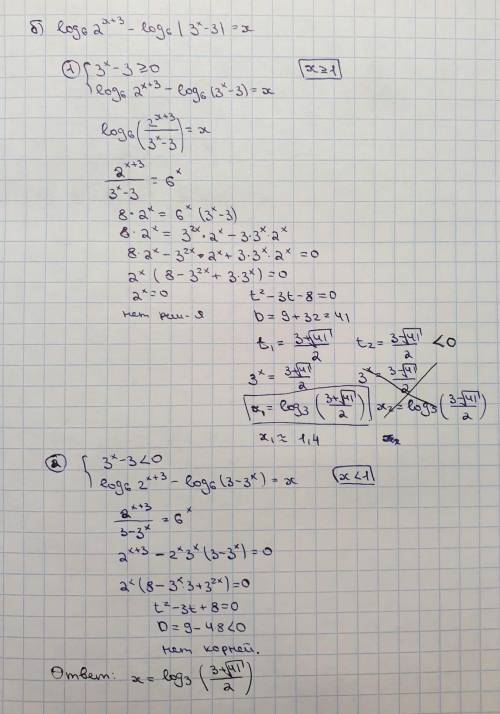 б) log₆ 2^(x+3) − log₆ |3^x − 3| = x
① { 3^x − 3 ≥ 0 x ≥ 1
log₆ 2^(x+3) − log₆ (3^x − 3) = x
log₆ (2^(x+3) / (3^x − 3)) = x
2^(x+3) / (3^x − 3) = 6^x
8 · 2^x = 6^x (3^x − 3)
8 · 2^x = 3^(2x) · 2^x − 3 · 3^x · 2^x
8 · 2^x − 3^(2x) · 2^x + 3 · 3^x · 2^x = 0
2^x (8 − 3^(2x) + 3 · 3^x) = 0
2^x = 0 t² − 3t − 8 = 0
нет реш-я D = 9 + 32 = 41
t₁ = (3+√41)/2 t₂ = (3−√41)/2 < 0
3^x = (3+√41)/2 3^x = (3−√41)/2
x₁ = log₃ ((3+√41)/2) x₂ = log₃ ((3−√41)/2)
x₁ ≈ 1,4
② { 3^x − 3 < 0 x < 1
log₆ 2^(x+3) − log₆ (3 − 3^x) = x
2^(x+3) / (3 − 3^x) = 6^x
2^(x+3) − 2^x 3^x (3 − 3^x) = 0
2^x (8 − 3^x · 3 + 3^(2x)) = 0
t² − 3t + 8 = 0
D = 9 − 48 < 0
нет корней.
Ответ: x = log₃ ((3+√41)/2)